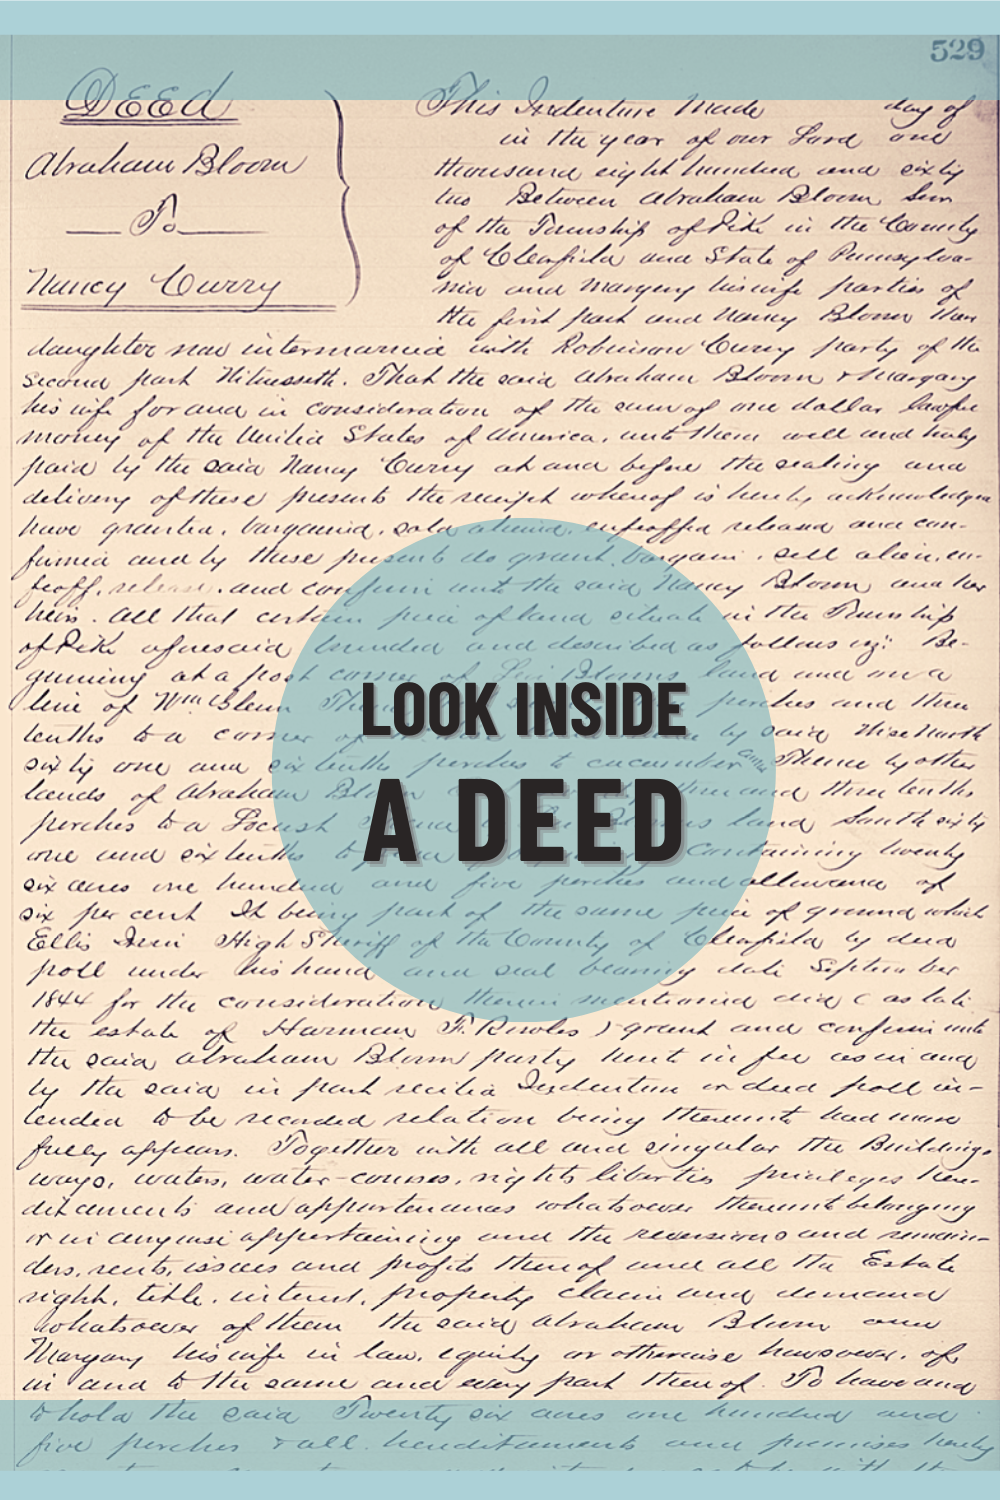 529
DEED
Abraham Bloom
To
Nancy Curry
This Indenture Made day of
in the year of our Lord one
thousand eight hundred and sixty
two Between Abraham Bloom Senr
of the Township of Pike in the County
of Clearfield and State of Pennsylva-
nia and Margery his wife parties of
the first part and Nancy Bloom their
daughter now intermarried with Robinson Curry party of the
second part Witnesseth. That the said Abraham Bloom & Margary
his wife for and in consideration of the sum of one dollar lawful
money of the United States of America, unto them well and truly
paid by the said Nancy Curry at and before the sealing and
delivery of these presents the receipt whereof is hereby acknowledged
have granted, bargained, sold aliened, enfeoffed released and con-
firmed and by these presents do grant, bargain, sell alien, en-
feoff, release, and confirm unto the said Nancy Bloom and her
heirs. All that certain piece of land situate in the Township
of Pike aforesaid bounded and described as follows viz: Be-
ginning at a post corner of Bloom's land and on a
line of Wm Bloom perches and three
tenths to a corner of by said Wise North
sixty one and six tenths perches to cucumber Thence by other
lands of Abraham Bloom and three tenths
perches to a Locust land South sixty
one and six tenths to Containing twenty
six acres one hundred and five perches and allowance of
six per cent It being part of the same piece of ground which
Ellis Irwin High Sheriff of the County of Clearfield by deed
poll under his hand and seal bearing date September
1844 for the consideration therein mentioned did (as late
the estate of Harman F. Rowles) grant and confirm unto
the said Abraham Bloom party hereto in fee as in and
by the said in part recited Indenture or deed poll in-
tended to be recorded relation being thereunto had more
fully appears. Together with all and singular the Buildings,
ways, waters, water-courses, rights liberties privileges here-
ditaments and appurtenances whatsoever thereunto belonging
or in anywise appertaining and the reversions and remain-
ders, rents, issues and profits thereof and all the Estate
right, title, interest, property claim and demand
whatsoever of them the said Abraham Bloom and
Margary his wife in law, equity or otherwise howsoever, of,
in and to the same and every part thereof. To have and
to hold the said Twenty six acres one hundred and
five perches & all. hereditaments and premises hereby
LOOK INSIDE
A DEED